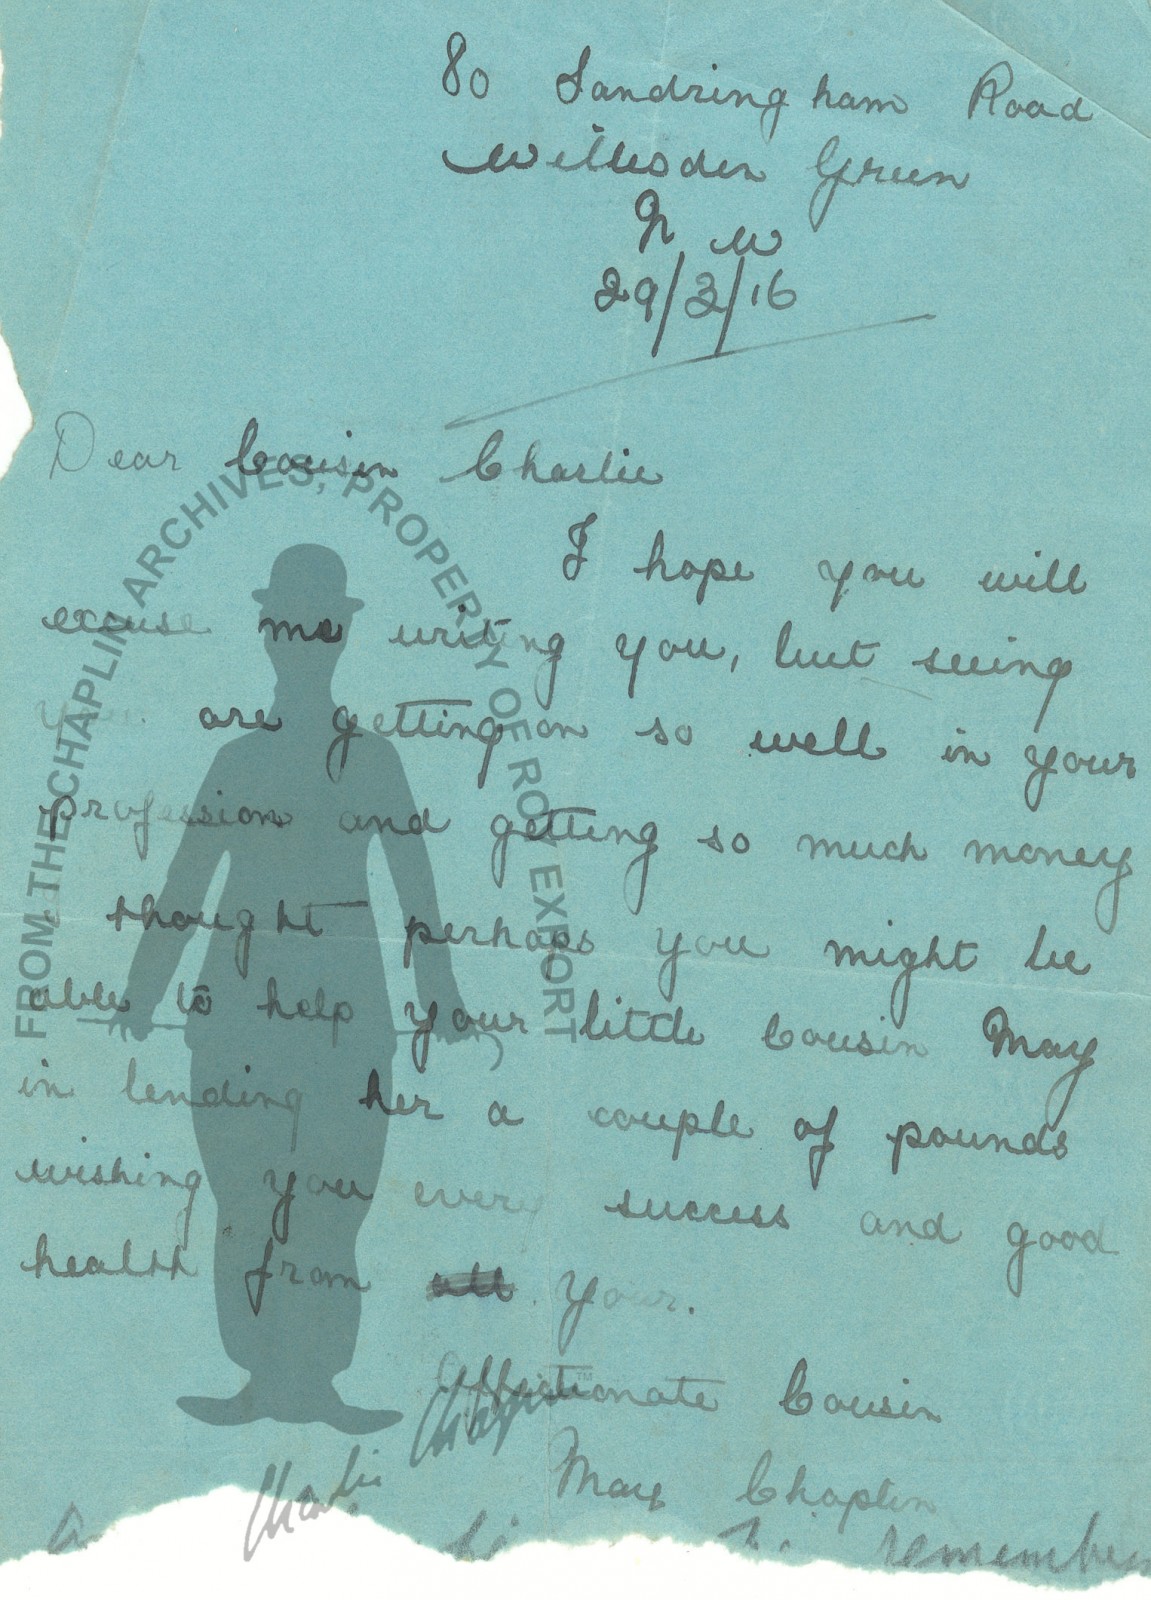 80 Sandringham Road
Willesden Green
N W
29/3/16
Dear Cousin Charlie
I hope you will
excuse me writing you, but seeing
you are getting on so well in your
profession and getting so much money
thought perhaps you might be
able to help your little Cousin May
in lending her a couple of pounds
wishing you every success and good
health from all your.
Affectionate Cousin
May Chaplin
remember
FROM THE CHAPLIN ARCHIVES, PROPERTY OF ROY EXPORT
Charlie Chaplin
TM